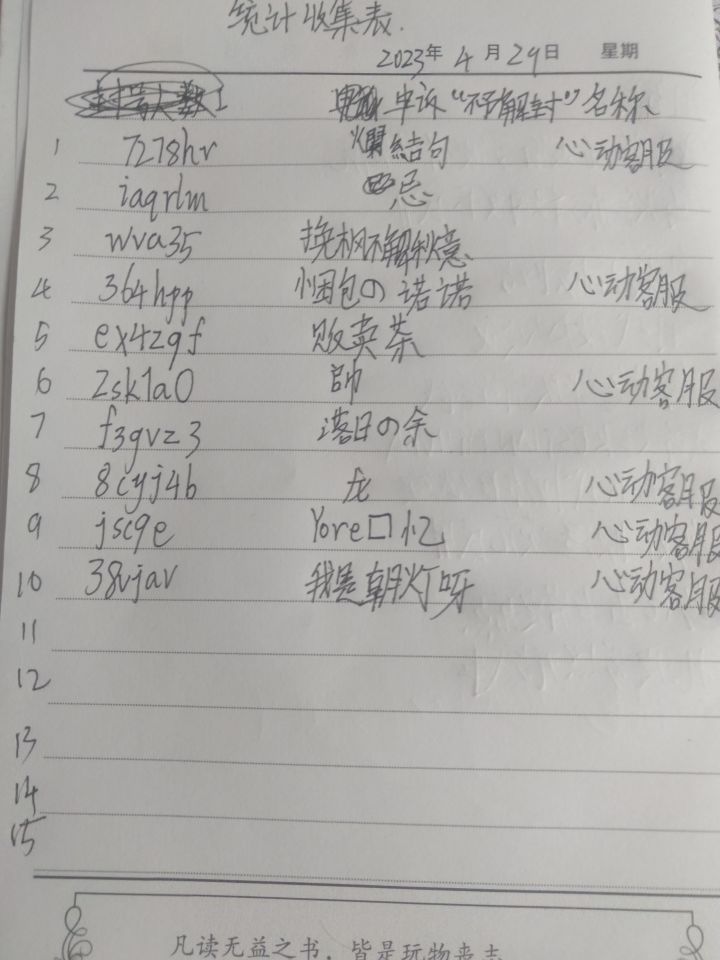 统计收集表.
2023年 4月 29日 星期
申诉“不予解封”名称
1 7278hr 爛結句 心动客服
2 iaqrlm 忌
3 wva35 挽枫不解秋意
4 364hpp 悃包の诺诺 心动客服
5 ex4zgf 败卖茶
6 2sk1a0 帥 心动客服
7 f3gvz3 落日の余
8 8cyj4b 龙 心动客服
9 jsc9e Yore口忆 心动客服
10 38vjav 我是朝灯呀 心动客服
11
12
13
14
15
凡读无益之书，皆是玩物丧志